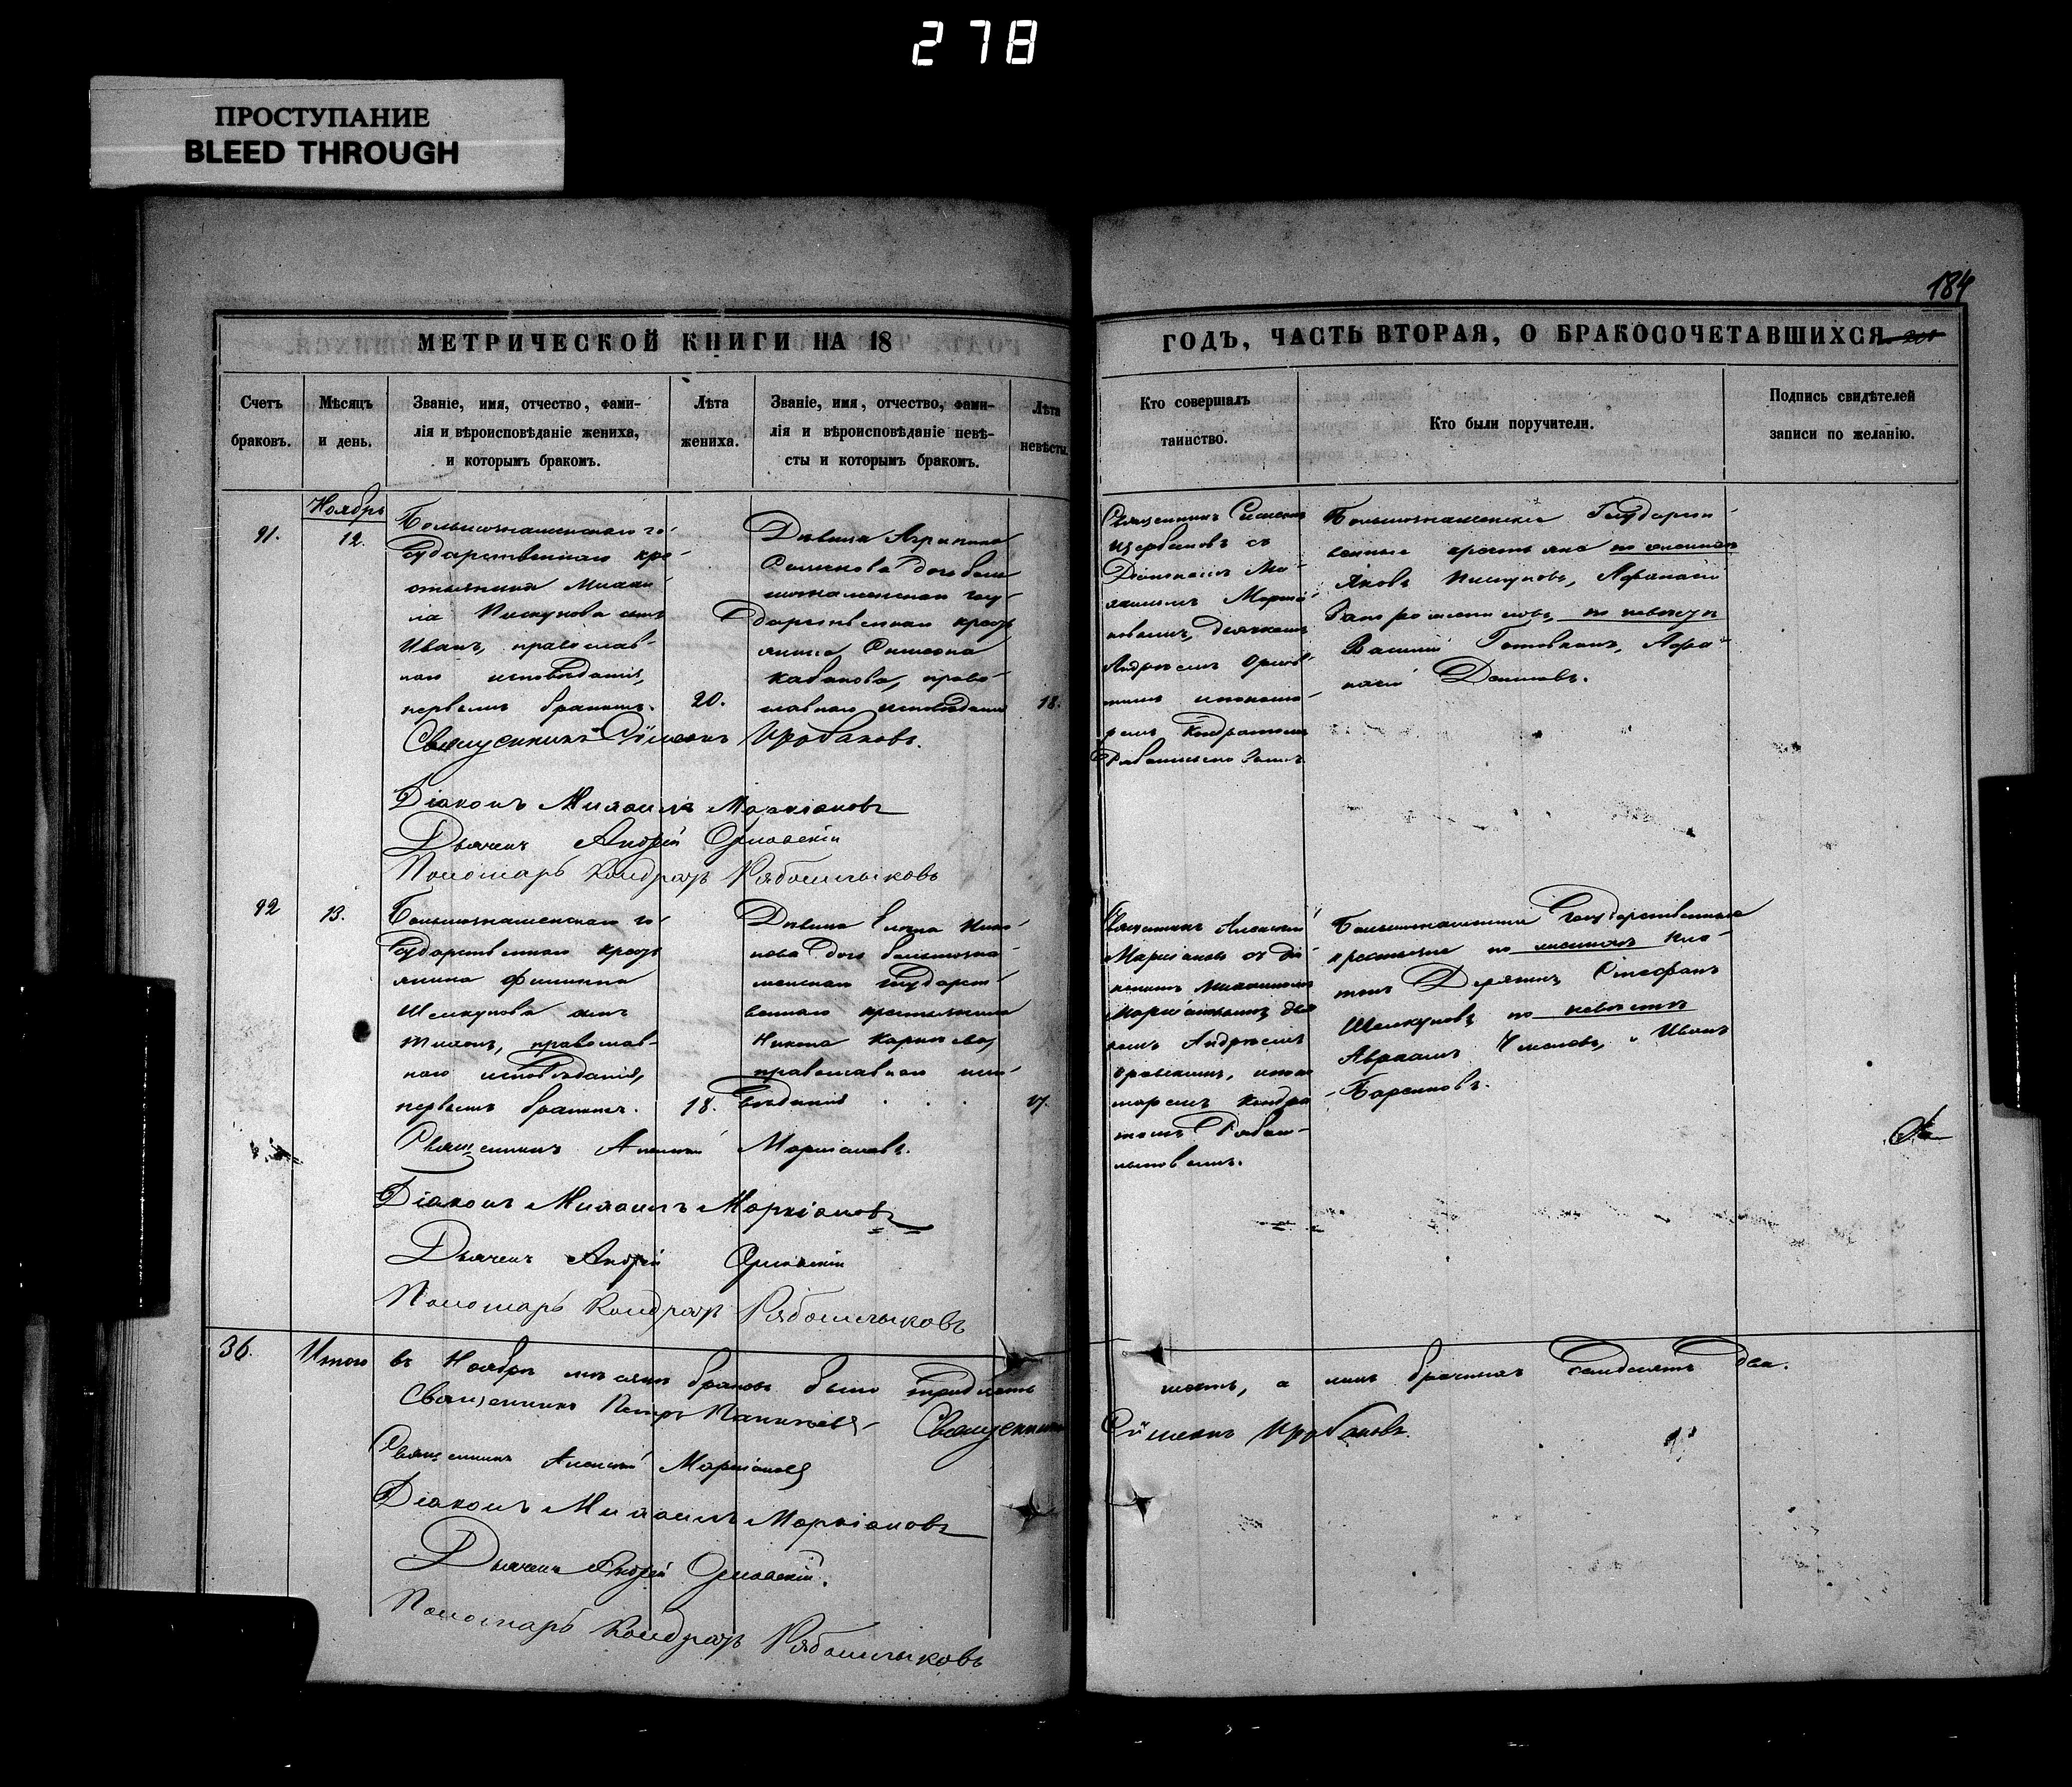 278
ПРОСТУПАНИЕ
BLEED THROUGH
184
МЕТРИЧЕСКОЙ КНИГИ НА 18
ГОДЪ, ЧАСТЬ ВТОРАЯ, О БРАКОСОЧЕТАВШИХСЯ
Счетъ
браковъ.
Мѣсяцъ
и день.
Званіе, имя, отчество, фами-
лія и вѣроисповѣданіе жениха,
и которымъ бракомъ.
Лѣта
жениха.
Званіе, имя, отчество, фами-
лія и вѣроисповѣданіе невѣ-
сты и которымъ бракомъ.
Лѣта
невѣсты.
Кто совершалъ
таинство.
Кто были поручители.
Подпись свидѣтелей
записи по желанію.
Ноябрь
91.
12.
Большознаменскаго го-
сударственнаго кре-
стьянина Михаи-
ла Пискунова сынъ
Иванъ, православ-
наго исповѣданія,
первымъ бракомъ.
20.
Дѣвица Агрипина
Симеонова дочь боль
шознаменскаго госу-
дарственнаго кресть
янина Симеона
Кабанова, право-
славнаго исповѣданія
18.
Священникъ Симеонъ
съ
Діакономъ Ми-
хаиломъ Маркіа-
новымъ, дьячкомъ
Андреемъ Орлов-
скимъ и понома-
ремъ Кондратомъ
Большознаменскіе Государст-
венные крестьяне по женихѣ
Яковъ Пискуновъ, Афанасій
по невѣстѣ
Василій Афа-
насій Даниловъ.
Священникъ Сѵмеонъ
Діаконъ Михаилъ Маркіановъ
Дьячекъ Андрей Орловскій
Пономарь Кондратъ Рябошлыковъ
92
13.
Большознаменскаго го-
сударственнаго кресть
янина Филиппа
Шелкунова сынъ
православ-
наго исповѣданія,
первымъ бракомъ.
18.
Дѣвица Елена Нико-
нова дочь большозна-
менскаго Государст-
веннаго крестьянина
Никона Карпова,
православнаго испо-
вѣданія
17.
Священникъ Алексій
Маркіановъ съ Ді-
акономъ Михаиломъ
Маркіановымъ, дья
комъ Андреемъ
Орловскимъ, поно
маремъ Кондра-
томъ Рябош-
лыковымъ.
Большознаменскіе Государственные
крестьяне по женихѣ
Стефанъ
Шелкуновъ, по невѣстѣ
Авраамъ и Иванъ
Священникъ Алексій Маркіановъ.
Діаконъ Михаилъ Маркіановъ
Дьячекъ Андрей Орловскій
Пономарь Кондратъ Рябошлыковъ
36.
Итого въ Ноябрѣ мѣсяцѣ браковъ было тридцать
шесть, а лицъ брачныхъ семдесятъ два.
Священникъ Петръ
Священникъ Сѵмеонъ
Священникъ Алексій Маркіановъ
Діаконъ Михаилъ Маркіановъ
Дьячекъ Андрей Орловскій.
Пономарь Кондратъ Рябошлыковъ